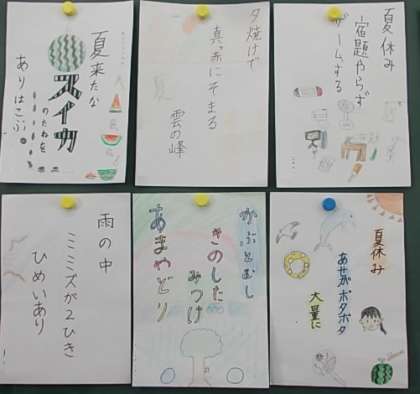 夏休み
宿題やらず
ゲームする
夕焼けで
真っ赤にそまる
雲の峰
夏来たな
スイカ
のたねを
ありはこぶ。
夏休み
あせがポタポタ
大量に
かぶとむし
きのした
みつけ
あまやどり
雨の中
ミミズが2ひき
ひめいあり